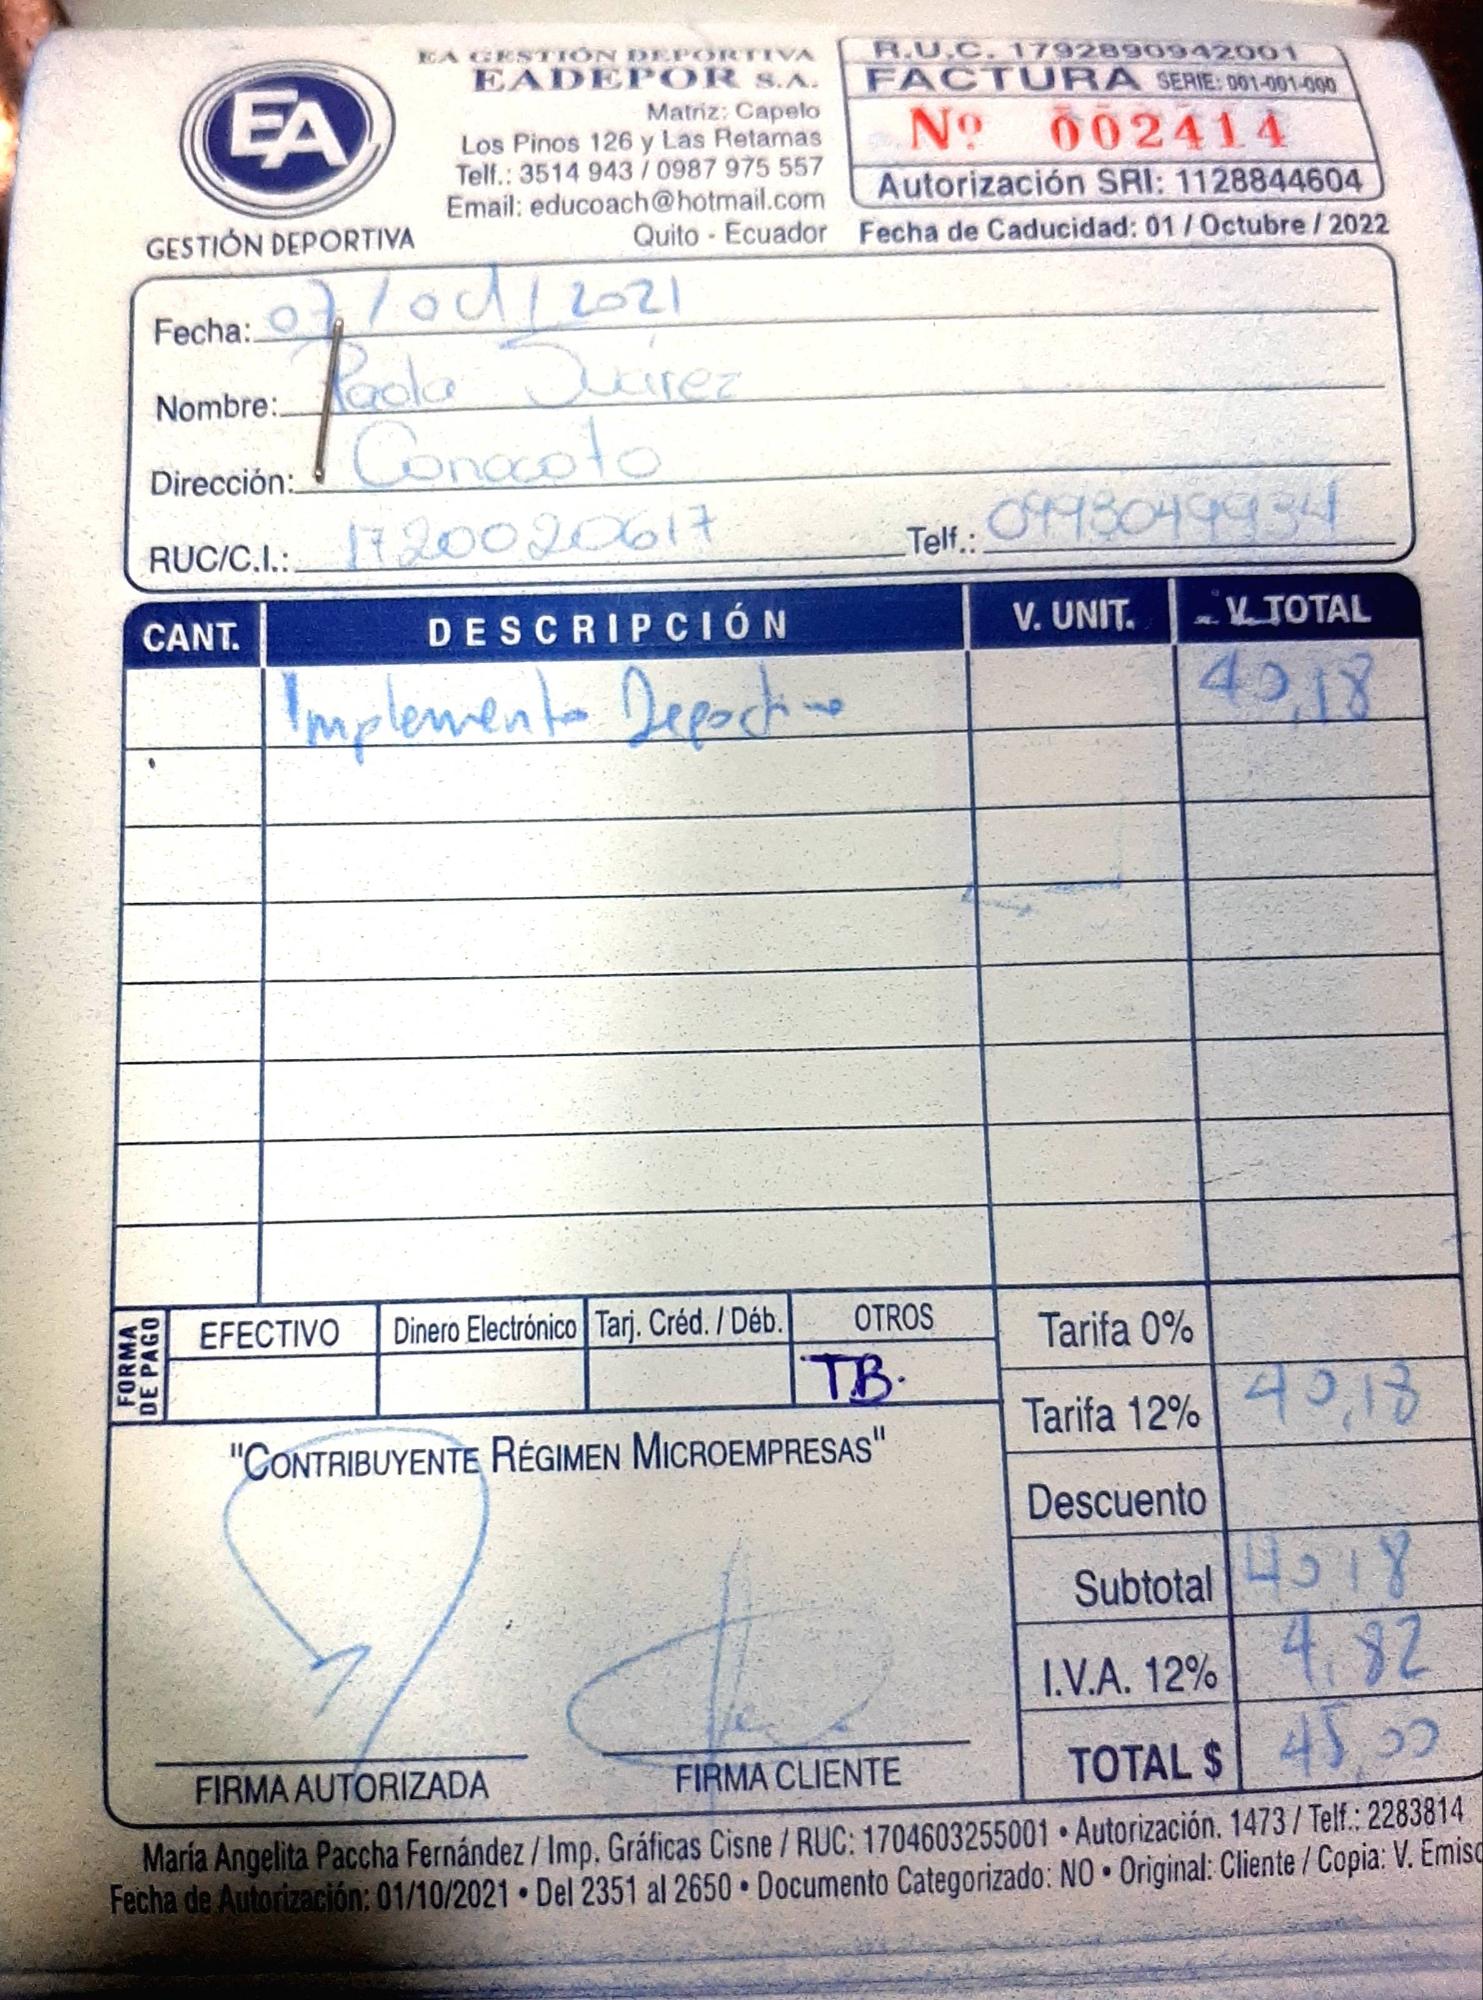 EA
GESTIÓN DEPORTIVA
EA GESTIÓN DEPORTIVA
EADEPOR S.A.
Matriz: Capelo
Los Pinos 126 y Las Retamas
Telf.: 3514 943 / 0987 975 557
Email: educoach@hotmail.com
Quito - Ecuador
R.U.C. 1792890942001
FACTURA SERIE: 001-001-000
Nº 002414
Autorización SRI: 1128844604
Fecha de Caducidad: 01 / Octubre / 2022
Fecha: 07/oct/2021
Nombre: Paola Juárez
Dirección: Conocoto
RUC/C.I.: 1720020617 Telf.: 0993049934
CANT. DESCRIPCIÓN V. UNIT. V. TOTAL
Implemento Deportivo 40,18
FORMA DE PAGO EFECTIVO Dinero Electrónico Tarj. Créd. / Déb. OTROS
T.B.
Tarifa 0%
Tarifa 12% 40,18
Descuento
Subtotal 40,18
I.V.A. 12% 4,82
TOTAL $ 45,00
"CONTRIBUYENTE RÉGIMEN MICROEMPRESAS"
FIRMA AUTORIZADA FIRMA CLIENTE
María Angelita Paccha Fernández / Imp. Gráficas Cisne / RUC: 1704603255001 • Autorización. 1473 / Telf.: 2283814
Fecha de Autorización: 01/10/2021 • Del 2351 al 2650 • Documento Categorizado: NO • Original: Cliente / Copia: V. Emiso